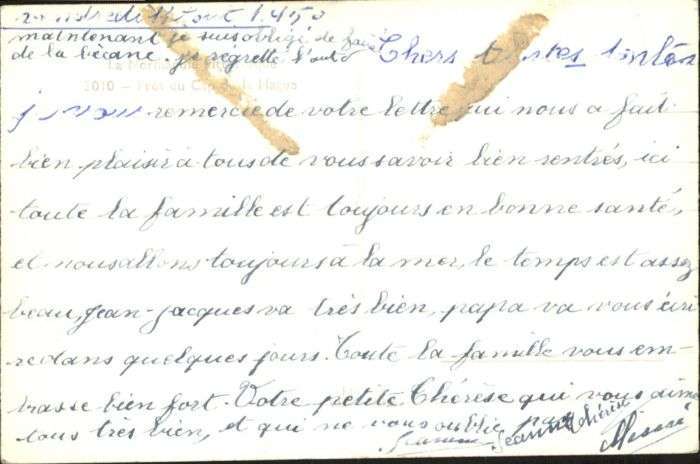 Août 1950
maintenant je suis obligé de faire
de la bécane. je regrette l'auto
Chers tontons
3010 — du Cap de la Hague
je vous remercie de votre lettre qui nous a fait
bien plaisir à tous de vous savoir bien rentrés, ici
toute la famille est toujours en bonne santé,
et nous allons toujours à la mer, le temps est assez
beau, Jean-Jacques va très bien, papa va vous écri
re dans quelques jours. Toute la famille vous em-
brasse bien fort. Votre petite Thérèse qui vous aime
tous très bien, et qui ne vous oublie pas
Jeanne Thérèse